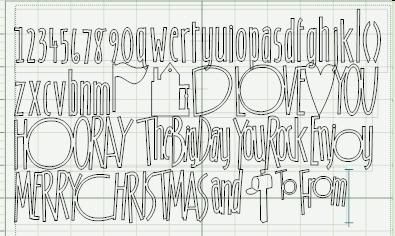 1234567890qwertyuiopasdfghjkl()
zxcvbnm D I LOVE YOU
HOORAY The Big Day You Rock Enjoy
MERRY CHRISTMAS and To From